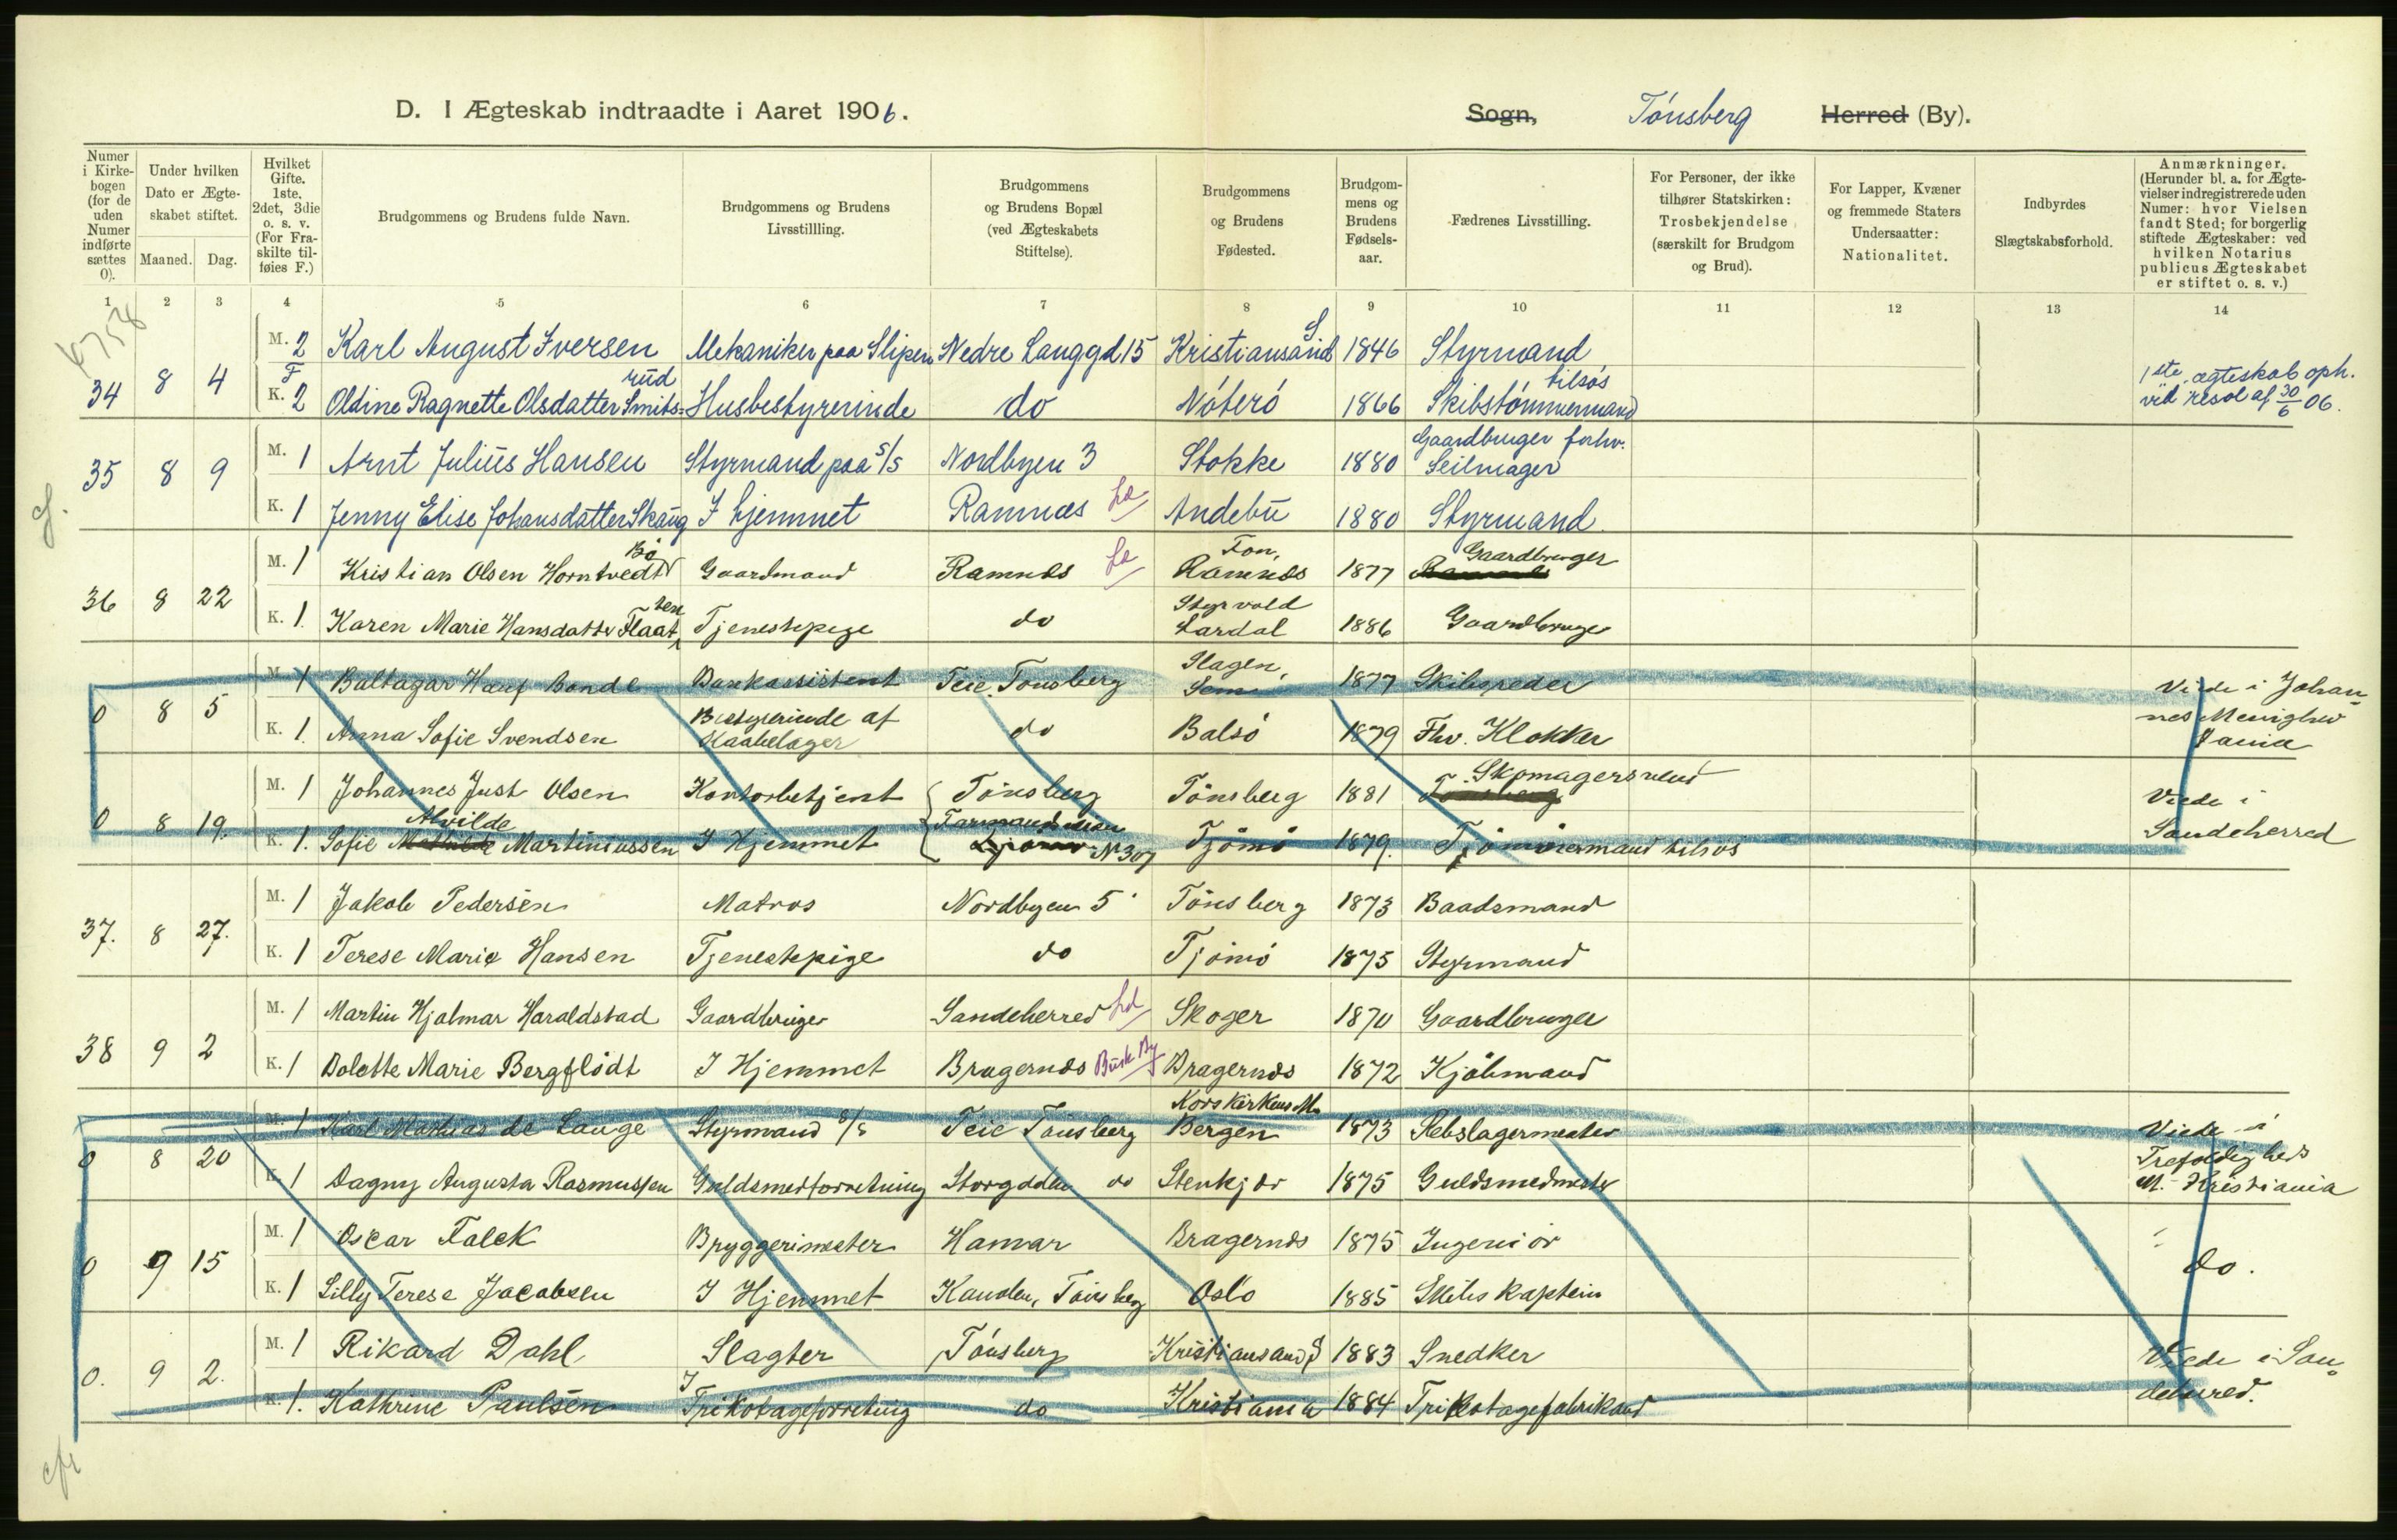 D. I Ægteskab indtraadte i Aaret 1906.
Sogn, Tönsberg Herred (By).
Numer i Kirkebogen (for de uden Numer indførte sættes 0).
Under hvilken Dato er Ægteskabet stiftet.
Maaned. Dag.
Hvilket Gifte. 1ste, 2det, 3die o. s. v. (For Fraskilte tilføies F.)
Brudgommens og Brudens fulde Navn.
Brudgommens og Brudens Livsstillling.
Brudgommens og Brudens Bopæl (ved Ægteskabets Stiftelse).
Brudgommens og Brudens Fødested.
Brudgommens og Brudens Fødselsaar.
Fædrenes Livsstilling.
For Personer, der ikke tilhører Statskirken: Trosbekjendelse (særskilt for Brudgom og Brud).
For Lapper, Kvæner og fremmede Staters Undersaatter: Nationalitet.
Indbyrdes Slægtskabsforhold.
Anmærkninger. (Herunder bl. a. for Ægtevielser indregistrerede uden Numer: hvor Vielsen fandt Sted; for borgerlig stiftede Ægteskaber: ved hvilken Notarius publicus Ægteskabet er stiftet o. s. v.)
1 2 3 4 5 6 7 8 9 10 11 12 13 14
34 8 4 M. 2 Karl August Iversen Mekaniker paa Slipen Nedre Langgd 15 Kristiansand S 1846 Styrmand
F K. 2 Oldine Ragnette Olsdatter Smitsrud Husbestyrerinde do Nöterö 1866 Skibstömmermand tilsös 1ste ægteskab oph. ved resol af 30/6 06.
35 8 9 M. 1 Arnt Julius Hansen Styrmand paa S/S Nordbyen 3 Stokke 1880 Gaardbruger forhv. Seilmager
K. 1 Jenny Elise Johansdatter Skaug I hjemmet Ramnæs Andebu 1880 Styrmand
36 8 22 M. 1 Kristian Olsen Horntvedt Bö Gaardmand Ramnæs Fon, Ramnæs 1877 Gaardbruger
K. 1. Karen Marie Hansdatter Flaaten Tjenestepige do Styrvold Lardal 1886 Gaardbruger
0 8 5 M. 1 Baltazar Bonde Bankassistent Teie. Tönsberg Slagen, Sem 1877 Skibsreder Viede i Johannes Menighed
K. 1. Anna Sofie Svendsen Bestyrerinde af do Balsö 1879 Fhv. Klokker
0 8 19. M. 1 Johannes Just Olsen Kontorbetjent Tönsberg Tönsberg 1881 Skomagersvend Viede i Sandeherred
K. 1. Sofie Alvilde Martiniussen I Hjemmet No 307 Tjömö 1879.
37. 8 27. M. 1 Jakob Pedersen Matros Nordbyen 5 Tönsberg 1873 Baadsmand
K. 1 Terese Marie Hansen Tjenestepige do Tjömö 1875 Styrmand
38 9 2 M. 1 Martin Hjalmar Haraldstad Gaardbruger Sandeherred Skoger 1870 Gaardbruger
K. 1 Dolette Marie Bergflödt I Hjemmet Bragernæs Busk By Bragernæs 1872 Kjöbmand
0 8 20 M. 1 Karl Mathias de Lange Styrmand S/S Teie Tönsberg Korskirkens M. Bergen 1873 Rebslagermester Viede i Trefoldigheds M. Kristiania
K. 1 Dagny Augusta Rasmussen Guldsmedforretning do Stenkjær 1875 Guldsmedmester
0 9 15 M. 1 Oscar Falck Bryggerimester Hamar Bragernæs 1875 Ingeniör do.
K. 1 Lilly Terese Jacobsen I Hjemmet Kanalen, Tönsberg Oslo 1885 Skibskaptein
0. 9 2. M. 1 Rikard Dahl Slagter Tönsberg Kristiansand S 1883 Snedker Viede i Sandeherred.
K. 1. Kathrine Paulsen I Trikotageforretning do Kristiania 1884 Trikotagefabrikant